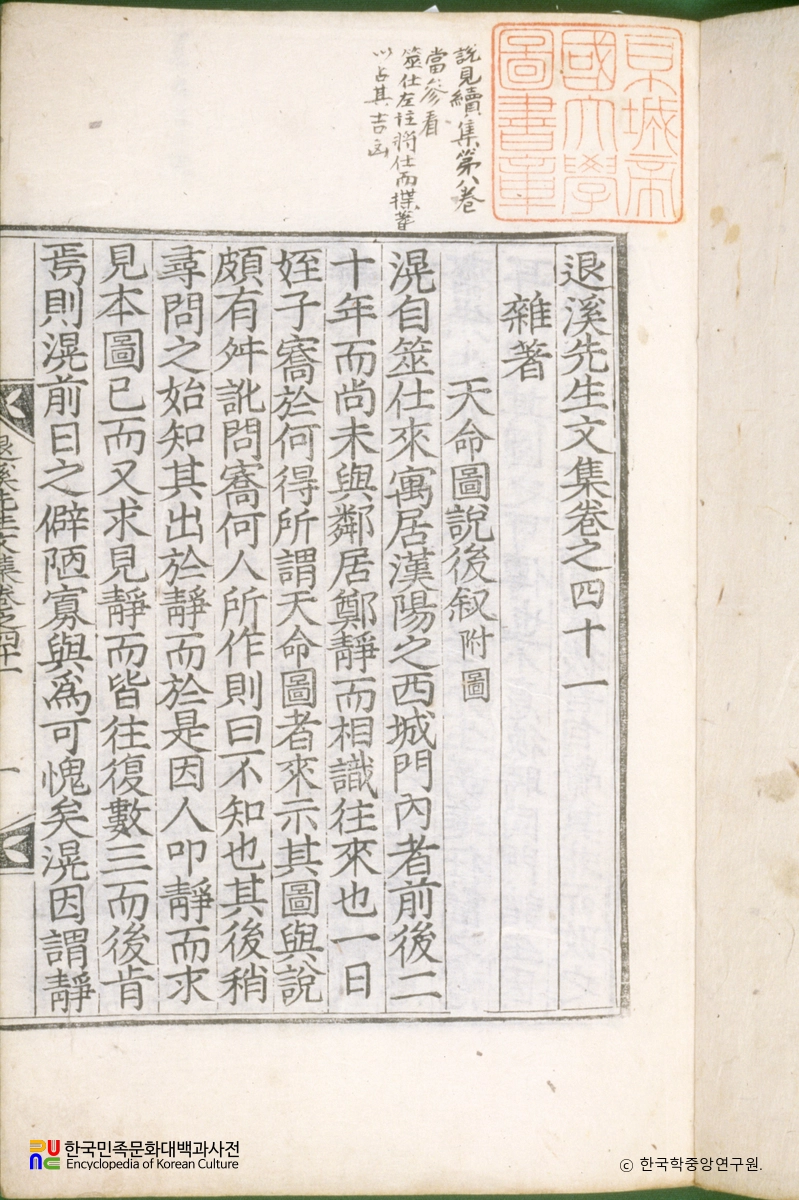 京城帝
國大學
圖書章
說見續集第八卷
當參看
筮仕左柱將仕而揲蓍
以占其吉凶
退溪先生文集卷之四十一
雜著
天命圖說後叙附圖
滉自筮仕來寓居漢陽之西城門內者前後二
十年而尚未與鄰居鄭靜而相識往來也一日
姪子㝯於何得所謂天命圖者來示其圖與說
頗有舛訛問㝯何人所作則曰不知也其後稍
尋問之始知其出於靜而於是因人叩靜而求
見本圖已而又求見靜而皆往復數三而後肯
焉則滉前日之僻陋寡與爲可愧矣滉因謂靜
退溪先生文集卷之四十一 一
한국민족문화대백과사전
Encyclopedia of Korean Culture
© 한국학중앙연구원.